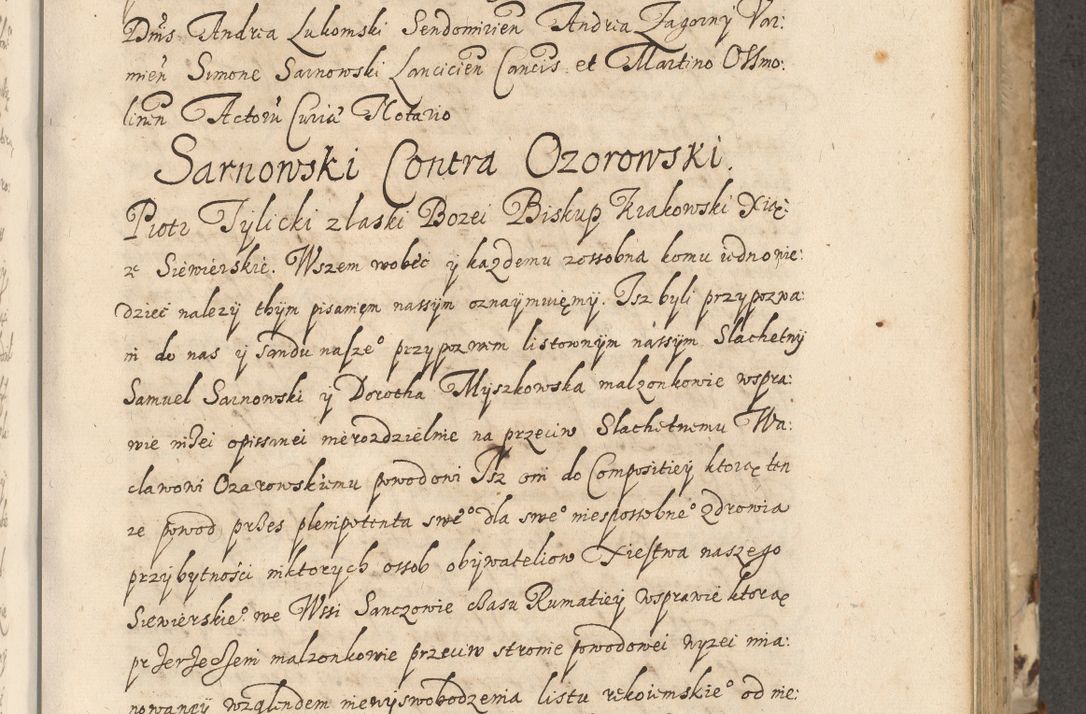 Dnis Andrea Lukomski Sendomirien Andrea Zagorny Var:
mien Simone Sarnowski Lancicien Cancis et Martino Ossmo:
linen Actoru Curiae Notario
Sarnowski Contra Ozorowski.
Piotr Tylicki z laski Bozei Biskup Krakowski Xiąz:
ze Siewierskie. Wszem wobec ÿ kazdemu zossobna komu iedno wie:
dziec nalezÿ thÿm pisaniem nassÿm oznaÿmuięmÿ. Isz byli przypozwa:
ni do nas ÿ sandu nasze° przypozwem listownÿm nassÿm Slachetnÿ
Samuel Sarnowski ÿ Dorotha Myszkowska malzonkowie wspra:
wie nizei opissanei nierozdzielnie na przeciw Slachetnemu Wa:
clawowi Ozarowskiemu powodowi Isz oni do Compositieÿ ktorą ten
ze powod przes plenipotenta swe° dla swe° niesposobne° zdrowia
przÿbÿtności niktorych ossob obÿwateliow Xięstwa naszego
Siewierskie° we Wsi Sanczowie czasu Rumatieÿ wsprawie ktorą
przerzeczeni malzonkowie przeciw stronie powodowei wyzei mia:
nowaneÿ względem niewÿswobodzenia listu rekoiemskie° od nie: